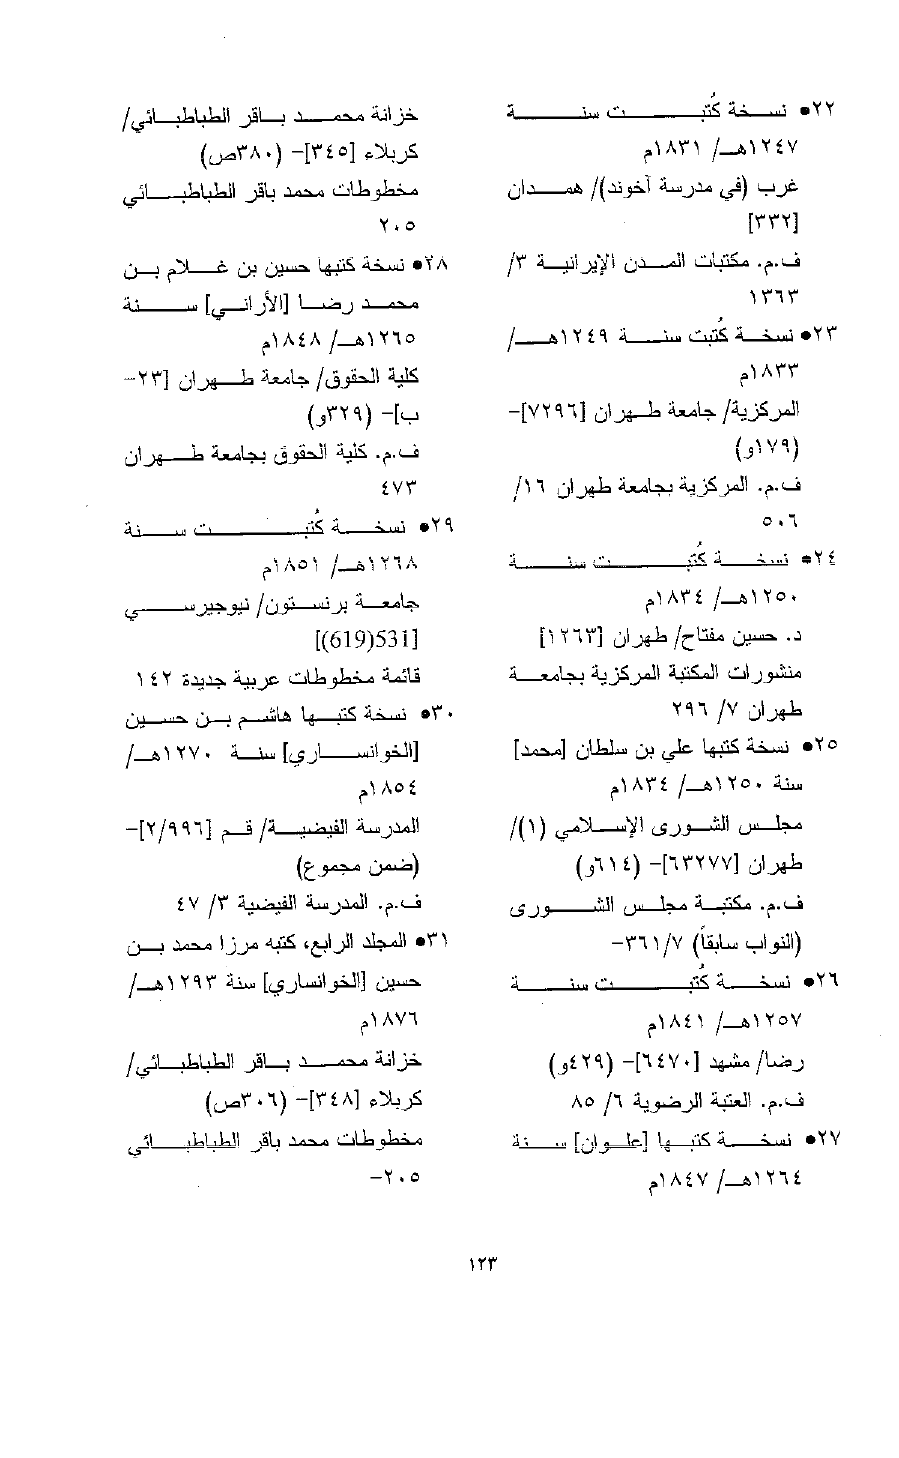 ٢٢• نسخة كُتبت سنة
١٢٤٧هـ/ ١٨٣١م
غرب (في مدرسة آخوند)/ همدان
[٣٣٢]
ف.م. مكتبات المدن الإيرانية ٣/
١٣٦٣
٢٣• نسخة كُتبت سنة ١٢٤٩هـ/
١٨٣٣م
المركزية/ جامعة طهران [٧٢٩٦]-
(١٧٩و)
ف.م. المركزية بجامعة طهران ١٦/
٥٠٦
٢٤• نسخة كُتبت سنة
١٢٥٠هـ/ ١٨٣٤م
د. حسين مفتاح/ طهران [١٢٦٣]
منشورات المكتبة المركزية بجامعة
طهران ٧/ ٢٩٦
٢٥• نسخة كتبها علي بن سلطان [محمد]
سنة ١٢٥٠هـ/ ١٨٣٤م
مجلس الشورى الإسلامي (١)/
طهران [٦٣٢٧٧]- (٦١٤و)
ف.م. مكتبة مجلس الشورى
(النواب سابقاً) ٣٦١/٧-
٢٦• نسخة كُتبت سنة
١٢٥٧هـ/ ١٨٤١م
رضا/ مشهد [٦٤٧٠]- (٤٢٩و)
ف.م. العتبة الرضوية ٦/ ٨٥
٢٧• نسخة كتبها [علوان] سنة
١٢٦٤هـ/ ١٨٤٧م
خزانة محمد باقر الطباطبائي/
كربلاء [٣٤٥]- (٣٨٠ص)
مخطوطات محمد باقر الطباطبائي
٢٠٥
٢٨• نسخة كتبها حسين بن غلام بن
محمد رضا [الأراني] سنة
١٢٦٥هـ/ ١٨٤٨م
كلية الحقوق/ جامعة طهران [٢٣-
ب]- (٣٢٩و)
ف.م. كلية الحقوق بجامعة طهران
٤٧٣
٢٩• نسخة كُتبت سنة
١٢٦٨هـ/ ١٨٥١م
جامعة برنستون/ نيوجيرسي
[531(619)]
قائمة مخطوطات عربية جديدة ١٤٢
٣٠• نسخة كتبها هاشم بن حسين
[الخوانساري] سنة ١٢٧٠هـ/
١٨٥٤م
المدرسة الفيضية/ قم [٢/٩٩٦]-
(ضمن مجموع)
ف.م. المدرسة الفيضية ٣/ ٤٧
٣١• المجلد الرابع، كتبه مرزا محمد بن
حسين [الخوانساري] سنة ١٢٩٣هـ/
١٨٧٦م
خزانة محمد باقر الطباطبائي/
كربلاء [٣٤٨]- (٣٠٦ص)
مخطوطات محمد باقر الطباطبائي
٢٠٥-
١٢٣